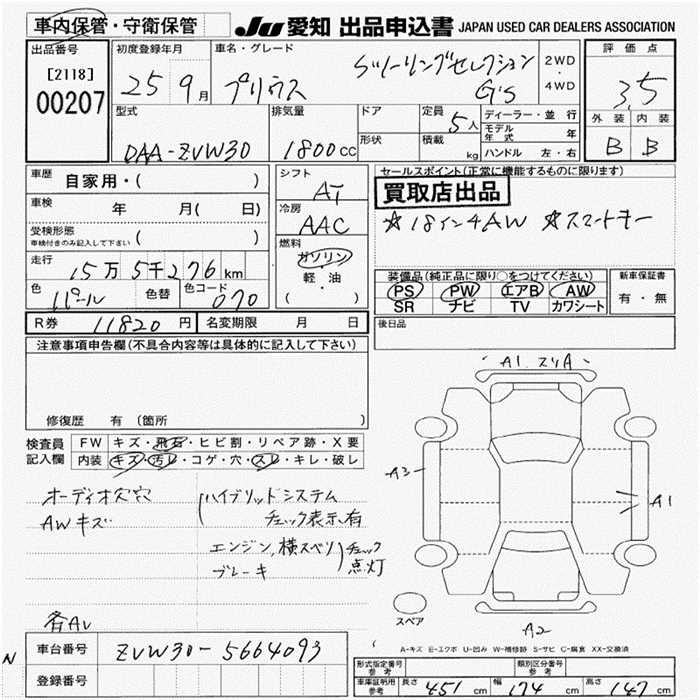 車内保管・守衛保管 JU 愛知 出品申込書 JAPAN USED CAR DEALERS ASSOCIATION
出品番号 初度登録年月 車名・グレード 2WD・4WD 評価点
[2118] 00207 25 9月 プリウス Sツーリングセレクション G's 3.5
型式 排気量 ドア 定員 5人 ディーラー・並行 外装 内装
DAA-ZVW30 1800cc 形状 積載 kg モデル年式 年 B B
ハンドル 左・右
車歴 自家用・( ) シフト AT セールスポイント(正常に機能するものに限ります)
車検 年 月( 日) 冷房 AAC 買取店出品
受検形態 車検付きのみ記入して下さい ( ) 燃料 ガソリン・軽・油 ( ) ☆18インチAW ☆スマートキー
走行 15万5千276km
色 パール 色替 色コード 070
装備品(純正品に限り○をつけてください) 新車保証書
PS PW エアB AW 有・無
SR ナビ TV カワシート
R券 11820円 名変期限 月 日 後日品
注意事項申告欄(不具合内容等は具体的に記入して下さい)
修復歴 有 (箇所 )
検査員記入欄 FW キズ・飛石・ヒビ割・リペア跡・X要
内装 キズ・汚レ・コゲ・穴・スレ・キレ・破レ
A1.スリA
A3
A1
A2
オーディオ欠穴 ハイブリッドシステム
AWキズ チェック表示有
エンジン,横スベリ チェック
ブレーキ 点灯
各AU
スペア
A-キズ E-エクボ U-凹み W-補修跡 S-サビ C-腐食 XX-交換済
N 車台番号 ZVW30-5664093
登録番号
形式指定番号参考 類別区分番号参考
車庫証明用参考 長さ 451cm 幅 174cm 高さ 147cm